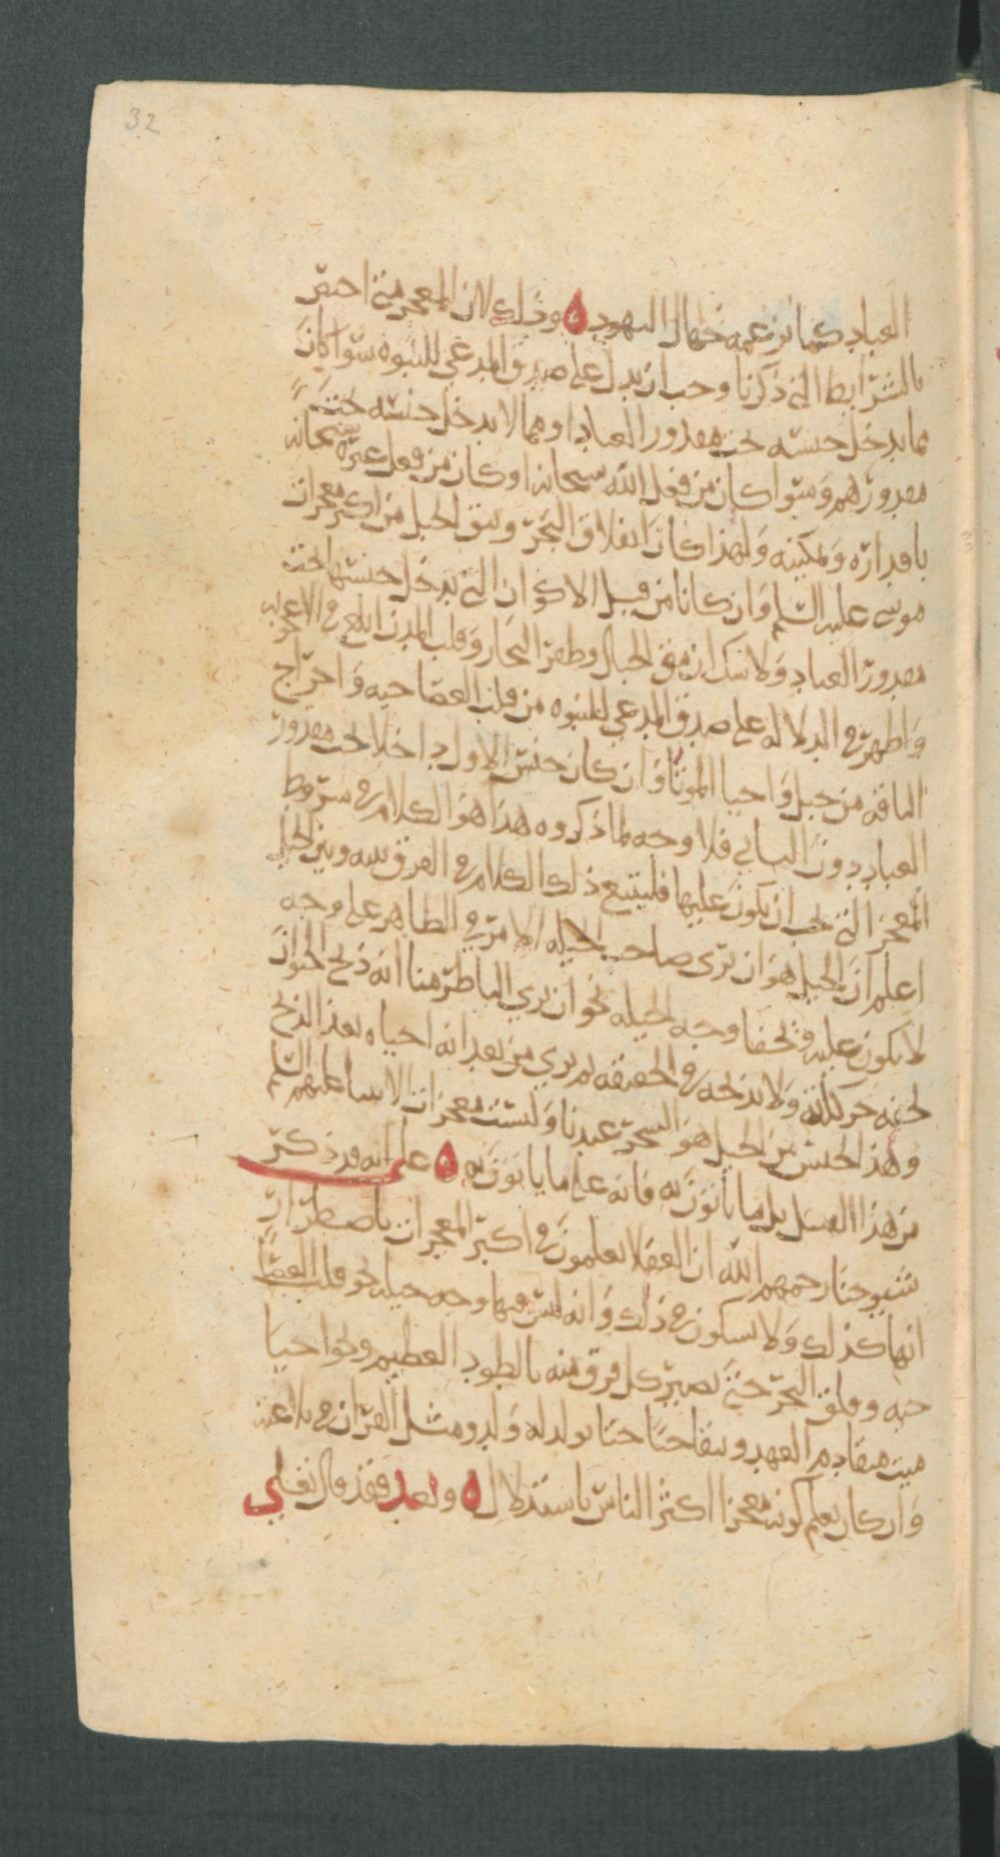 32
العباد كما تزعمه جهال اليهود ٥ وذلك لان المعجز متى اختص
بالشرايط التي ذكرنا وجب ان يدل على صدق المدعي للنبوه سوا كان
مما يدخل جنسه تحت مقدور العباد او مما لا يدخل جنسه تحت
مقدورهم وسوا كان من فعل الله سبحانه او كان من فعل غيره سبحانه
باقداره وتمكينه ولهذا كان انفلاق البحر ونتق الجبل من اكبر معجزات
موسى عليه السلم وان كانا من قبيل الاكوان التي يدخل جنسها تحت
مقدور العباد ولا شك ان نتق الجبال وطفر البحار وقلب المدن ابلغ في الاعجوبه
واظهر في الدلاله على صدق المدعي للنبوه من قلب العصا حيه واخراج
الناقه من جبل واحيا الموتا وان كان جنس الاول داخلا تحت مقدور
العباد دون الثاني فلا وجه لما ذكروه هذا هو الكلام في شروط
المعجز التي يجب ان يكون عليها فليتبع ذلك الكلام في الفرق بينه وبين الحيل
اعلم ان الحيل هو ان يرى صاحب الحيله الامر في الظاهر على وجه
لا يكون عليه ويخفا وجه الحيله نحو ان يري الناظر منا انه ذبح الحيوان
لخفه حركاته ولا يذبحه في الحقيقه ثم يري من بعد انه احياه بعد الذبح
وهذا الجنس من الحيل هو السحر عندنا وليست معجزات الانبيا عليهم السلم
من هذا القبيل بل ما ياتون به فانه على ما ياتون به ٥ على انه قد ذكر
شيوخنا رحمهم الله ان العقلا يعلمون في اكثر المعجزات باضطرار
انها كذلك ولا يشكون في ذلك وانه ليس فيها وجه حيله نحو قلب العصا
حيه وفلق البحر حتى يصير كل فرق منه كالطود العظيم ونحو احيا
ميت متقادم العهد ويبقا حيا حتا يولد له ولد ومثل القران في بلاغته
وان كان يعلم كونه معجزا اكثر الناس باستدلال ٥ وبعد فقد قال تعالى